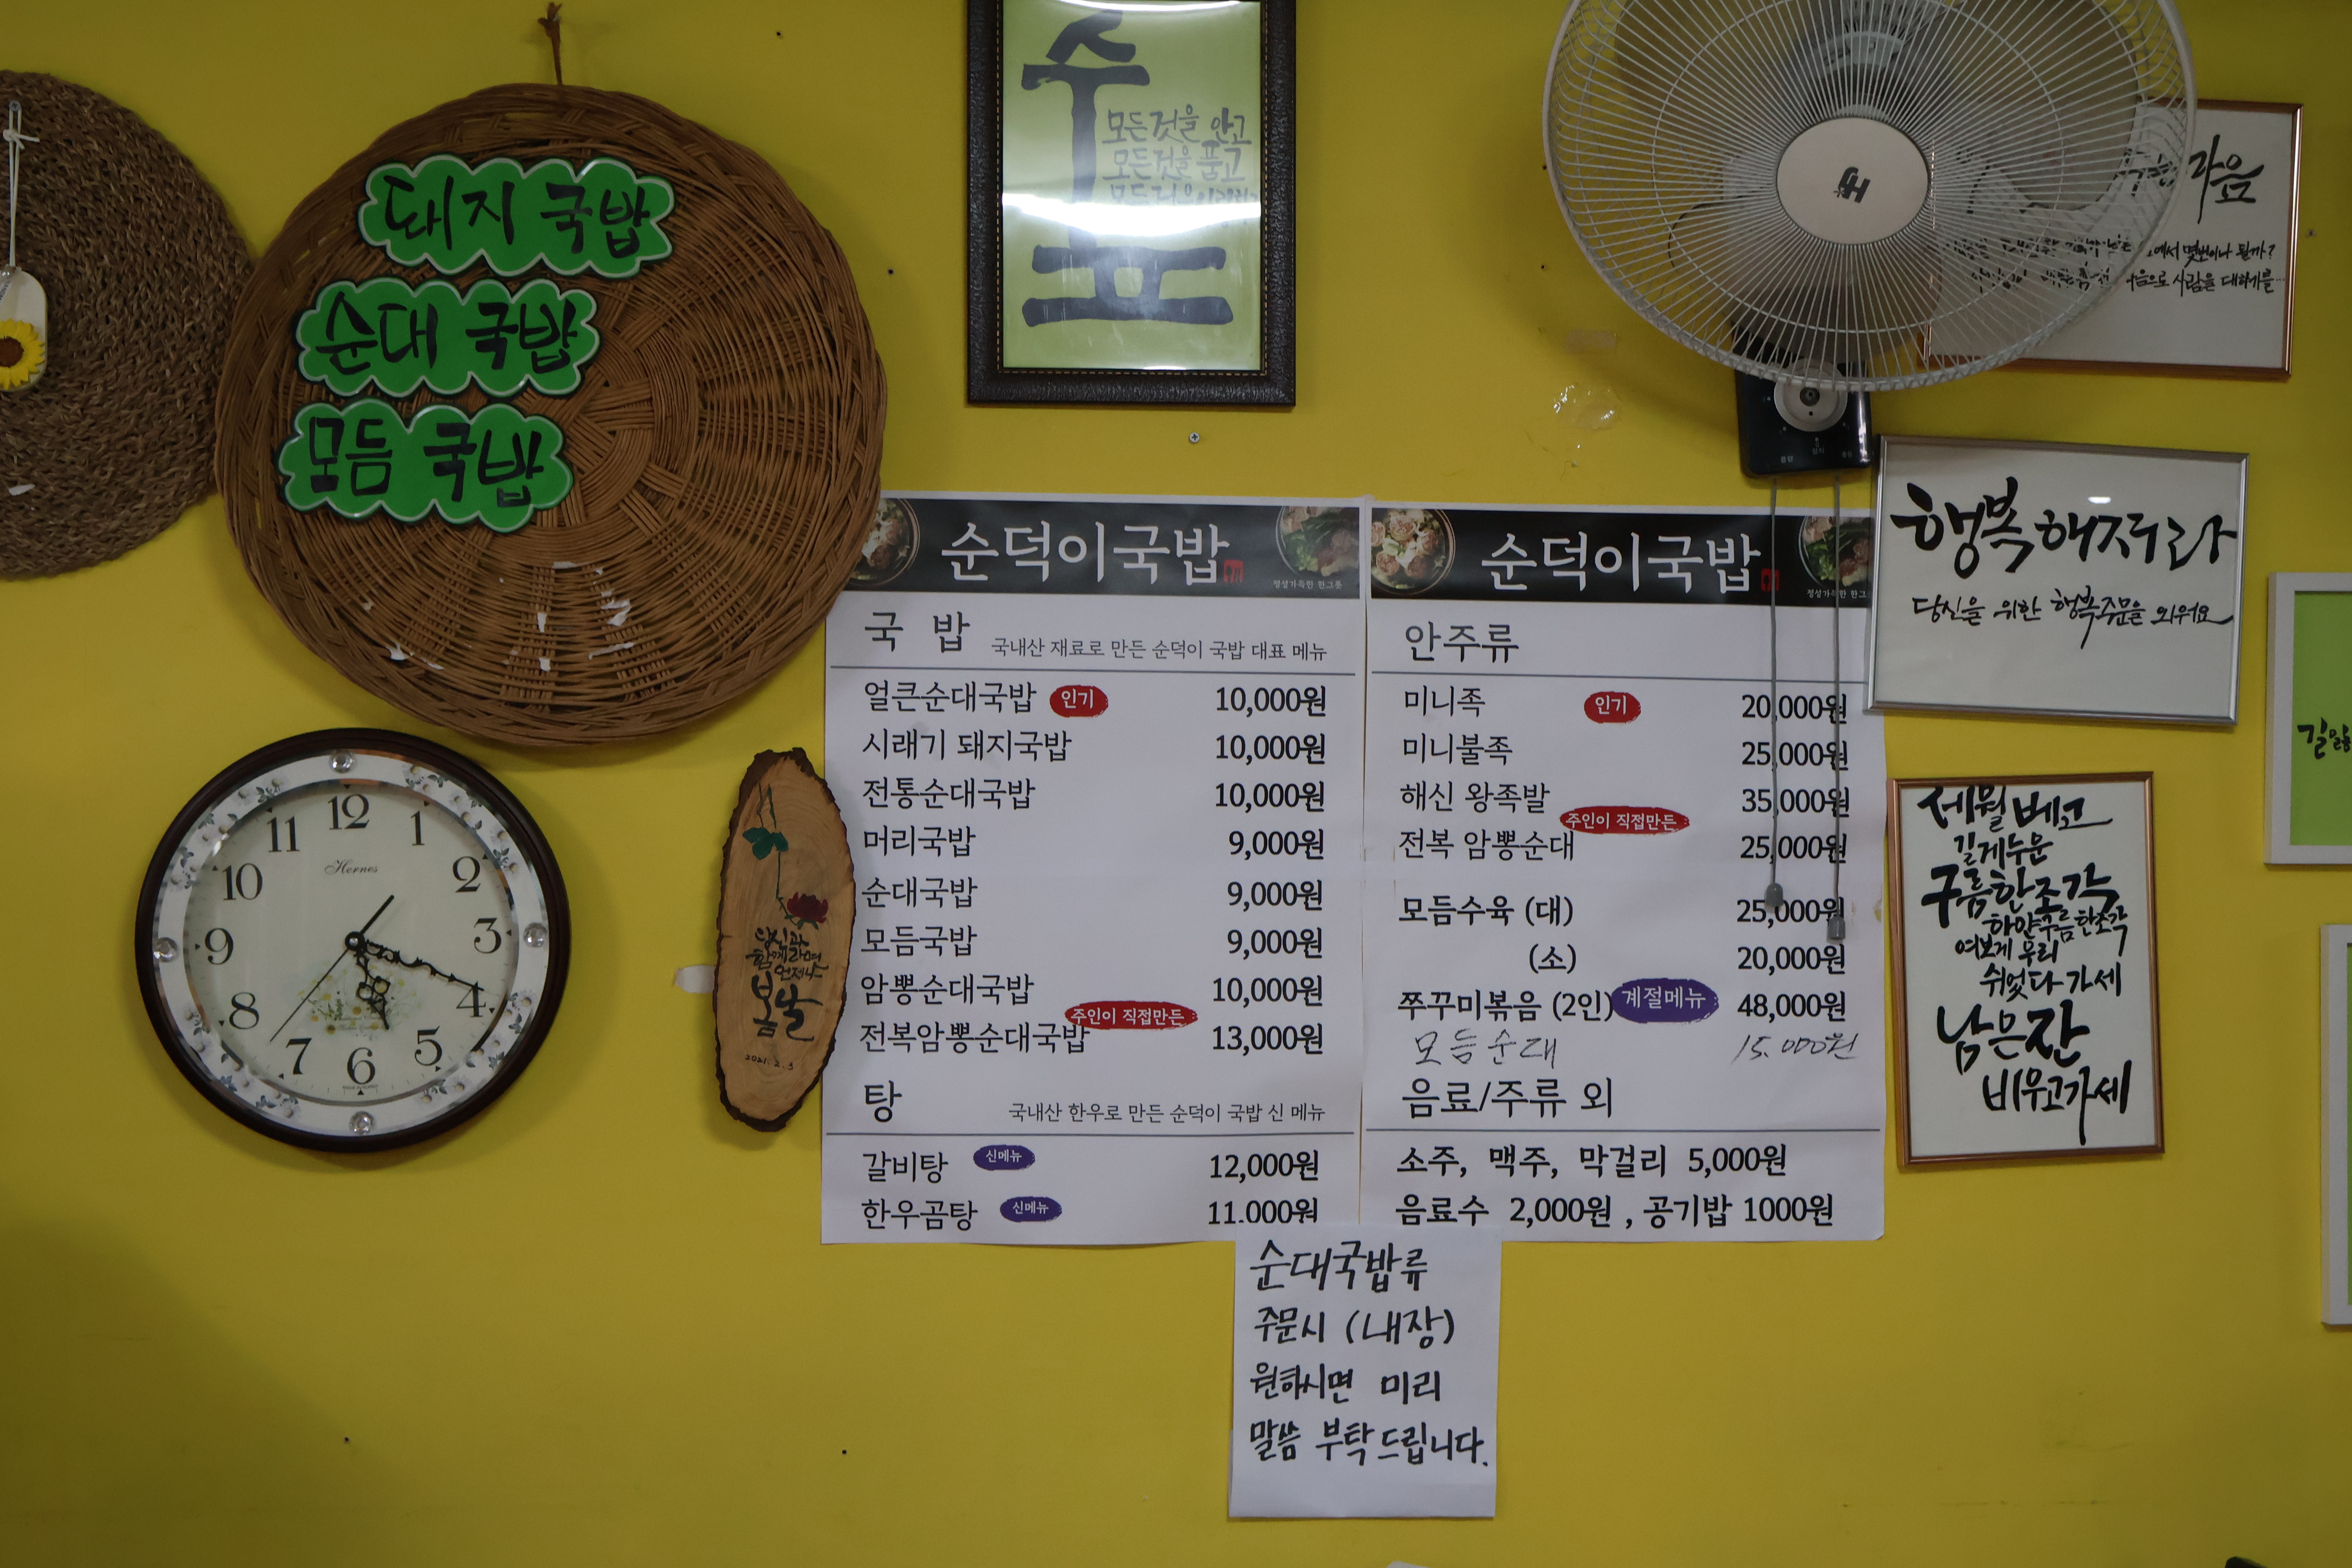 돼지 국밥
순대 국밥
모듬 국밥
수
모든것을 안고
모든것을 품고
HJ
에서 몇번이나 될까?
음으로 사람을 대하기를
행복해져라
당신을 위한 행복주문을 외워요
세월 베고
길게누운
구름한조각
하얀구름한조각
여보게 우리
쉬었다 가세
남은잔
비우고가세
12
1
2
3
4
5
6
7
8
9
10
11
Hermes
당신과
함께라면
언제나
봄날
2021.2.3
순덕이국밥
정성가득한 한그릇
국 밥 국내산 재료로 만든 순덕이 국밥 대표 메뉴
얼큰순대국밥 인기 10,000원
시래기 돼지국밥 10,000원
전통순대국밥 10,000원
머리국밥 9,000원
순대국밥 9,000원
모듬국밥 9,000원
암뽕순대국밥 10,000원
주인이 직접만든
전복암뽕순대국밥 13,000원
탕 국내산 한우로 만든 순덕이 국밥 신 메뉴
갈비탕 신메뉴 12,000원
한우곰탕 신메뉴 11,000원
순덕이국밥
정성가득한 한그
안주류
미니족 인기 20,000원
미니불족 25,000원
해신 왕족발 35,000원
주인이 직접만든
전복 암뽕순대 25,000원
모듬수육 (대) 25,000원
(소) 20,000원
쭈꾸미볶음 (2인) 계절메뉴 48,000원
모듬순대 15.000원
음료/주류 외
소주, 맥주, 막걸리 5,000원
음료수 2,000원 , 공기밥 1000원
순대국밥류
주문시 (내장)
원하시면 미리
말씀 부탁드립니다.